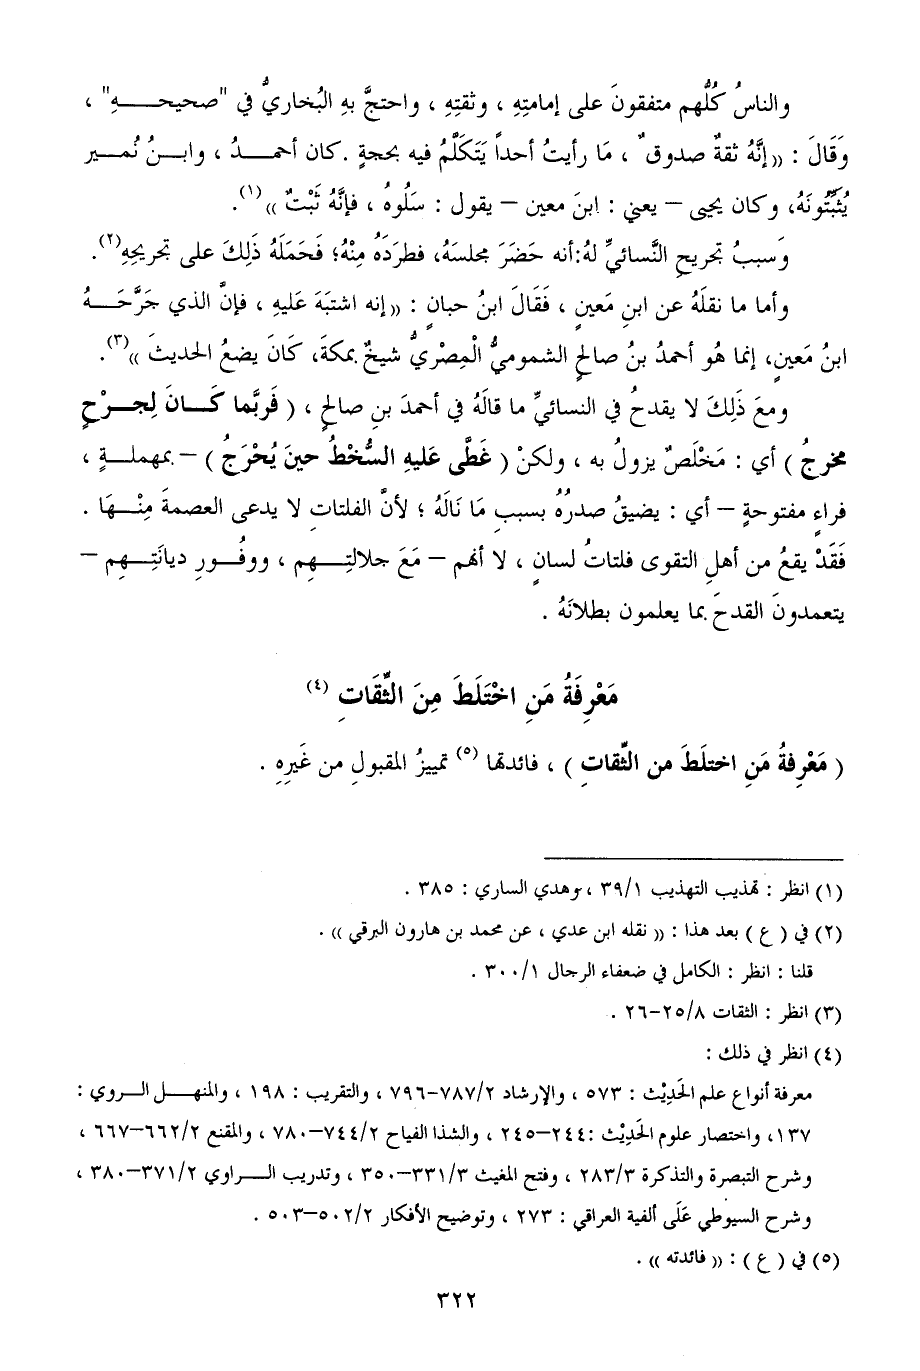 والناسُ كُلُّهم متفقونَ على إمامتِهِ ، وثقتِهِ ، واحتجَّ بهِ البُخاريُّ في "صحيحـــهِ" ،
وَقَالَ : (( إنَّهُ ثقةٌ صدوق ٌ ، مَا رأيتُ أحداً يَتَكَلَّمُ فيه بحجةٍ .كان أحمــدُ ، وابــنُ نُمــير
يُثَبِّتُونَهُ، وكان يحيى – يعني : ابنَ معين – يقول : سَلُوهُ ، فإنَّهُ ثَبْتٌ ))(١).
وَسببُ تجريحِ النَّسائيِّ لهُ:أنه حَضَرَ مجلسَهُ، فطرَدَهُ مِنْهُ؛ فَحَمَلَهُ ذَلِكَ على تجريحِهِ(٢).
وأما ما نقلَهُ عن ابنِ مَعينٍ ، فَقَالَ ابنُ حبان : (( إنه اشتبَهَ عَليهِ ، فإنَّ الذي جَرَّحَــهُ
ابنُ مَعينٍ، إنما هُو أحمدُ بنُ صالحٍ الشموميُّ الْمِصْريُّ شيخٌ بمكةَ، كَانَ يضعُ الحديثَ ))(٣).
ومعَ ذَلِكَ لا يقدحُ في النسائيِّ ما قالَهُ في أحمدَ بنِ صالحٍ ، ( فَربَّما كَــانَ لِجــرْحٍ
مخرجُ ) أي : مَخْلَصٌ يزولُ به ، ولكنْ ( غَطَّى عَليهِ السُّخطُ حينَ يُحْرَجُ ) – بمهملــةٍ ،
فراءٍ مفتوحةٍ – أي : يضيقُ صدرُهُ بسببِ مَا نَالَهُ ؛ لأنَّ الفلتاتِ لا يدعى العصمةَ مِنْــهَا .
فَقَدْ يقعُ من أهلِ التقوى فلتاتُ لسانٍ ، لا أنهم – مَعَ جلالتِــهِم ، ووفُــورِ ديانَتِــهِم –
يتعمدونَ القدحَ بما يعلمون بطلانَهُ .
مَعْرِفَةُ مَنِ اخْتَلَطَ مِنَ الثِّقَاتِ (٤)
( مَعْرِفةُ مَنِ اختلَطَ من الثِّقاتِ ) ، فائدتها (٥) تمييزُ المقبولِ من غَيرِهِ .
(١) انظر : تهذيب التهذيب ٣٩/١ ، وهدي الساري : ٣٨٥ .
(٢) في ( ع ) بعد هذا : (( نقله ابن عدي ، عن محمد بن هارون البرقي )) .
قلنا : انظر : الكامل في ضعفاء الرجال ٣٠٠/١ .
(٣) انظر : الثقات ٢٥/٨–٢٦ .
(٤) انظر في ذلك :
معرفة أنواع علم الحَدِيْث : ٥٧٣ ، والإرشاد ٧٨٧/٢–٧٩٦ ، والتقريب : ١٩٨ ، والمنهــل الــروي :
١٣٧، واختصار علوم الحَدِيْث :٢٤٤–٢٤٥ ، والشذا الفياح ٧٤٤/٢–٧٨٠ ، والمقنع ٦٦٢/٢–٦٦٧ ،
وشرح التبصرة والتذكرة ٢٨٣/٣ ، وفتح المغيث ٣٣١/٣–٣٥٠ ، وتدريب الــراوي ٣٧١/٢–٣٨٠ ،
وشرح السيوطي عَلَى ألفية العراقي : ٢٧٣ ، وتوضيح الأفكار ٥٠٢/٢–٥٠٣ .
(٥) في ( ع ) : (( فائدته )) .
٣٢٢